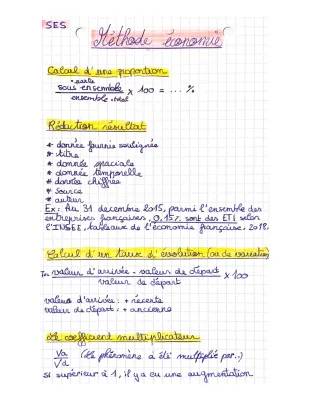 SES
Méthode économie
Calcul d'une proportion
• partie
sous ensemble
ensemble • total
x 100 = ... %
Rédaction résultat
* donnée fournie soulignée
* titre
* donnée spaciale
* donnée temporelle
* donnée chiffrée
* source
* auteur
Ex: Au 31 decembre 2015, parmi l'ensemble des
entreprises françaises, 0,15% sont des ETI selon
l'INSEE, tableaux de l'économie française, 2018.
Calcul d'un taux d'évolution (ou de variation)
valeur d'arrivée - valeur de départ
valeur de départ
x 100
valeur d'arrivée: + récente
valeur de départ: + ancienne
Le coefficient multiplicateur
Va
Vd
(le phénomène a été multiplié par..)
si supérieur à 1, il y a eu une augmentation